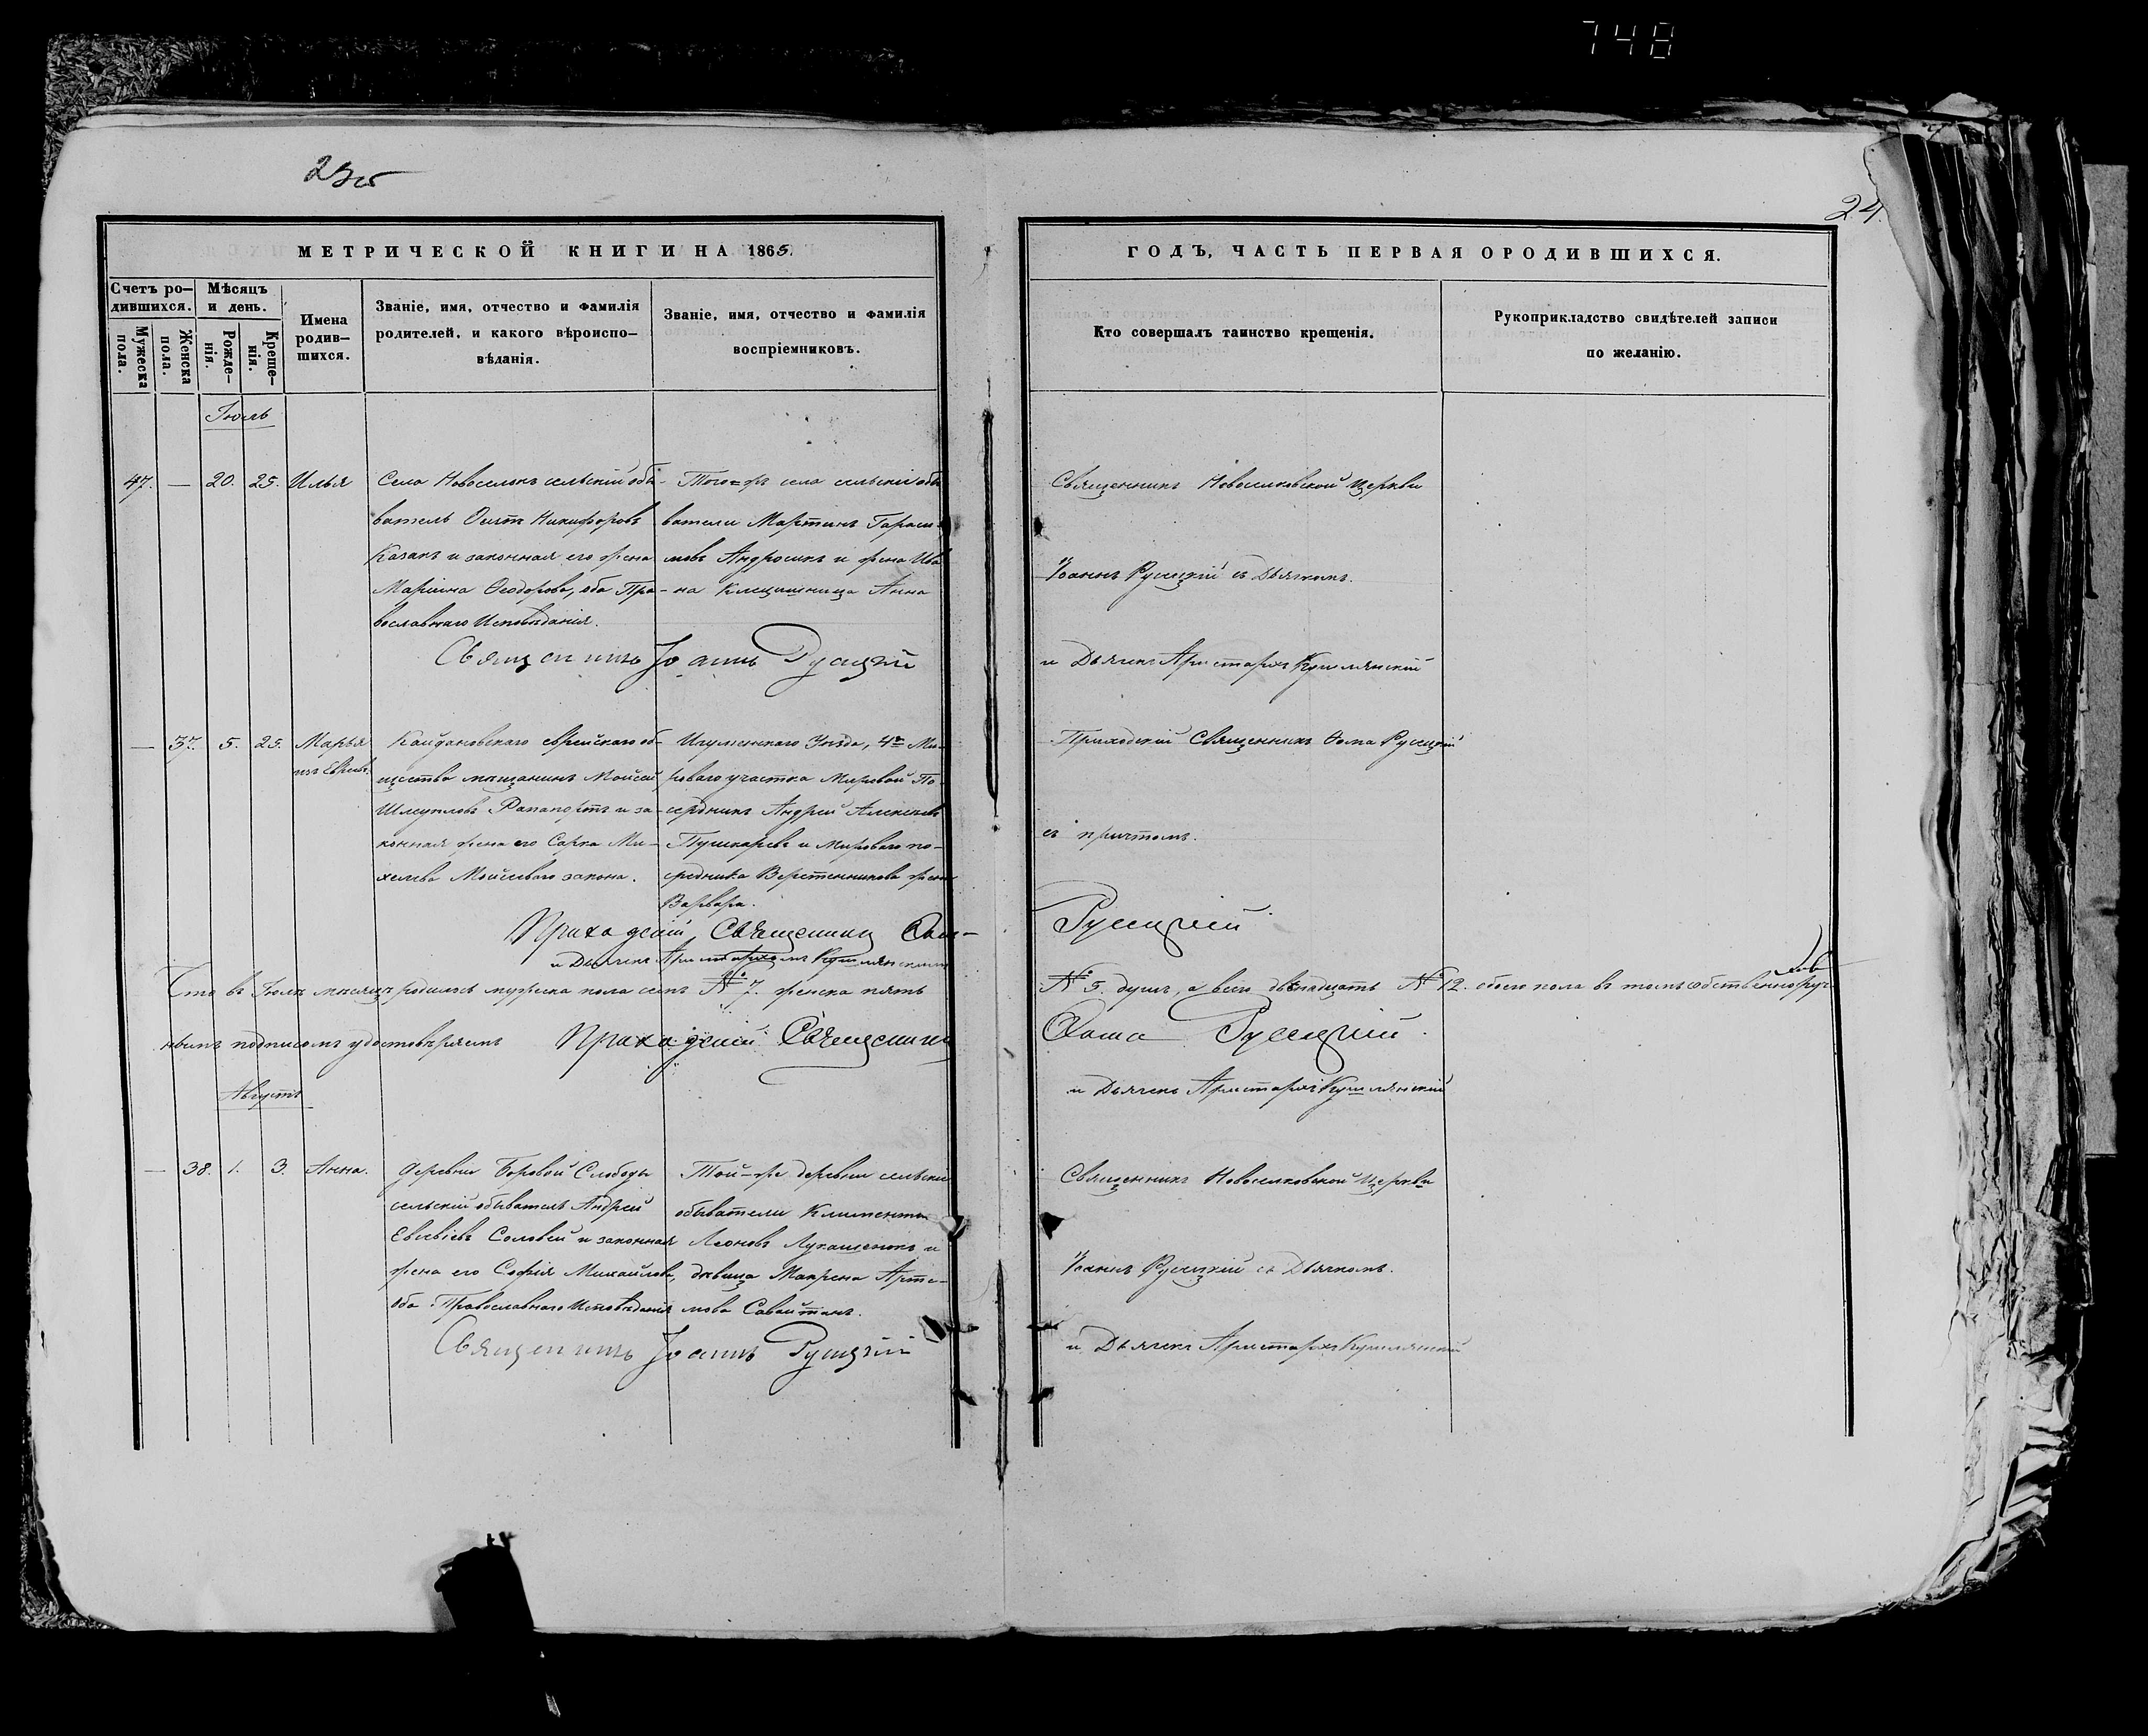 748
23об
24.
МЕТРИЧЕСКОЙ КНИГИ НА 1865.
ГОДЪ, ЧАСТЬ ПЕРВАЯ О РОДИВШИХСЯ.
Счетъ ро-
дившихся.
Мужеска
пола.
Женска
пола.
Мѣсяцъ
и день.
Рожде-
нія.
Креще-
нія.
Имена
родив-
шихся.
Званіе, имя, отчество и фамилія
родителей, и какого вѣроиспо-
вѣданія.
Званіе, имя, отчество и фамилія
воспріемниковъ.
Кто совершалъ таинство крещенія.
Рукоприкладство свидѣтелей записи
по желанію.
Іюль
47. — 20. 25. Илья
Села Новоселокъ сельскій обы-
ватель Никифоровъ
Казакъ и законная его жена
Маріина Ѳеодорова, оба Пра-
вославнаго Исповѣданія.
Того=жъ села сельскіе обы
ватели Мартинъ Гараси-
мовъ Андросикъ и жена Ива
на Анна
Священникъ Новоселковской Церкви
Іоаннъ Русецкій съ Дьячкомъ.
Священникъ Іоаннъ Русецкій
и Дьячекъ Аристархъ Кушлянскій
— 37. 5. 25. Марья
изъ Евреевъ.
Койдановскаго еврейскаго об-
щества мѣщанинъ Мойсей
Рапапортъ и за-
конная жена его Сорка Ми-
хелева Мойсеева закона.
Игуменскаго Уѣзда, 4го Ми-
роваго участка Мировой По
средникъ Андрей Алексѣевъ
Пушкаревъ и Мироваго по-
средника Верстенникова жена
Варвара.
Приходскій Священникъ Ѳома Русецкій
съ причтомъ.
Приходскій Священникъ Ѳома
Русецкій
и Дьячекъ Аристархъ Кушлянскій
Что въ Іюлѣ мѣсяцѣ родилось мужеска пола семь № 7. женска пять
№ 5. душъ, а всего двѣнадцать № 12. обоего пола въ томъ собственноруч
нымъ подписомъ удостовѣряемъ Приходскій Священникъ
Ѳома Русецкій
и Дьячекъ Аристархъ Кушлянскій
Августъ
— 38. 1. 3. Анна.
Деревни Боровой Слободы
сельскій обыватель Андрей
Евсевіевъ Соловей и законная
жена его Софія Михайлова,
оба Православнаго Исповѣданія
Той=же деревни сельскіе
обыватели Климентъ
Леоновъ Лукашенокъ и
дѣвица Макрена Арте-
мова Савостянъ.
Священникъ Новоселковской Церкви
Іоаннъ Русецкій съ Дьячкомъ.
Священникъ Іоаннъ Русецкій
и Дьячекъ Аристархъ Кушлянскій